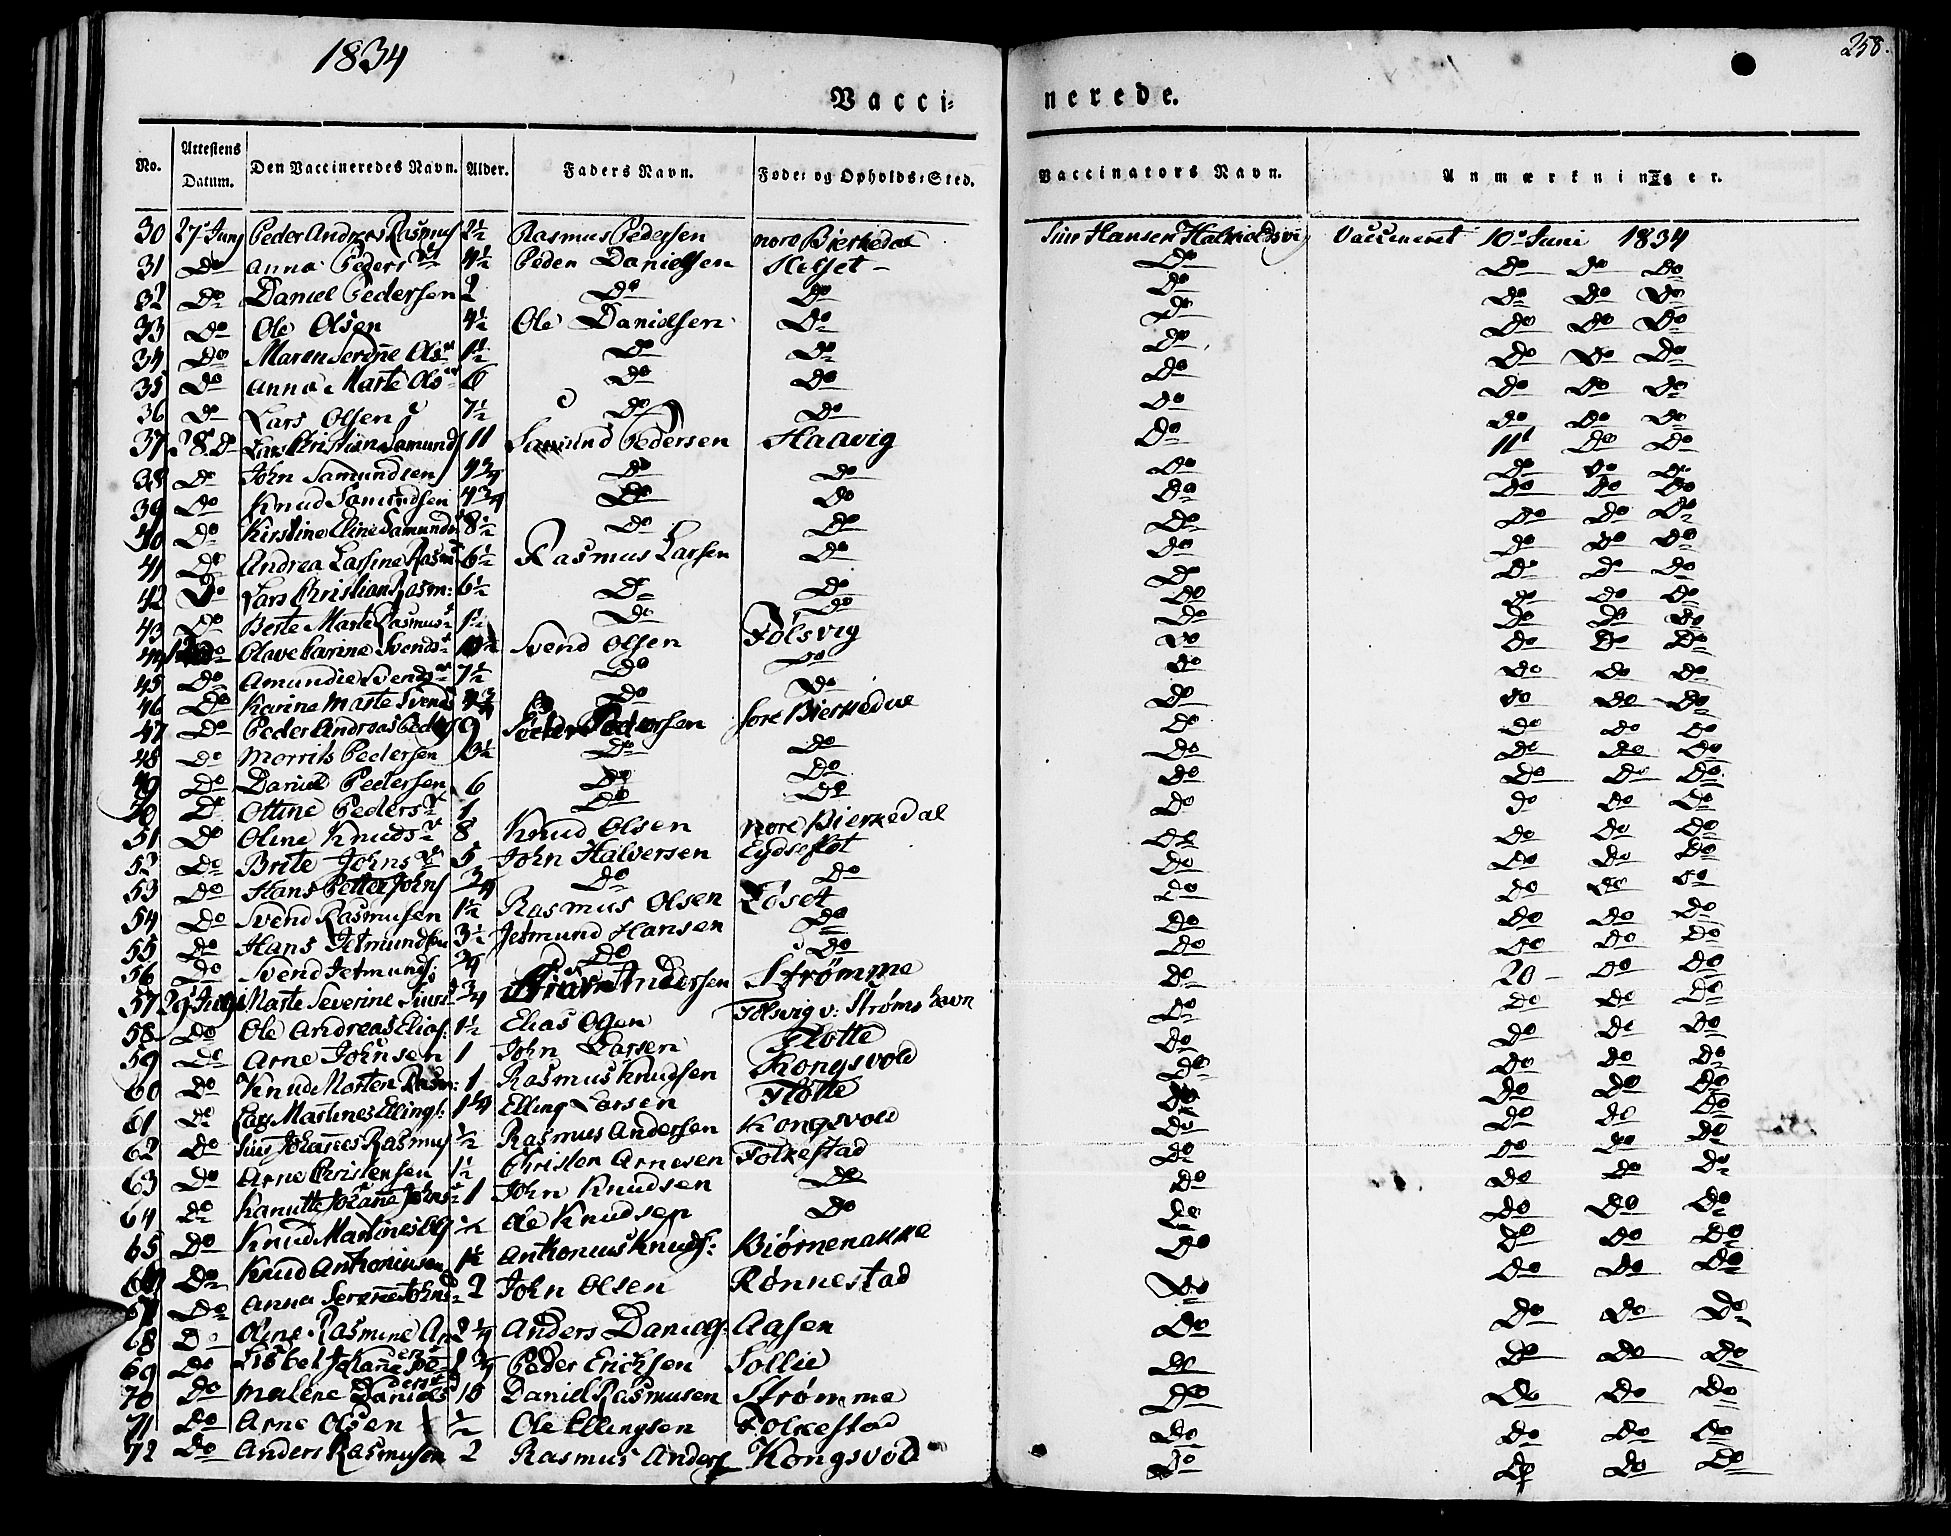 1834
258.
Vacci-
nerede.
No. Attestens Datum. Den Vaccineredes Navn. Alder. Faders Navn. Føde- og Opholds-Sted. Vaccinators Navn. Anmærkninger.
30 27 Juny Peder Andreas Rasmus 2½ Rasmus Pedersen nore Bierkedal Siur Hansen Vaccineret 10de Juni 1834
31 Do Anna Peders 4½ Peder Danielsen Hilset Do Do Do Do
32 Do Daniel Pedersen 2 Do Do Do Do Do Do
33 Do Ole Olsen 4½ Ole Danielsen Do Do Do Do Do
34 Do Maren Serine Ols 1½ Do Do Do Do Do Do
35 Do Anna Marte Ols 6 Do Do Do Do Do Do
36 Do Lars Olsen 7½ Do Do Do Do Do Do
37 28 Do Lars Christian Samunds 11 Samund Pedersen Haavig Do 11 Do Do
38 Do John Samundsen 4¾ Do Do Do Do Do Do
39 Do Knud Samundsen 4¾ Do Do Do Do Do Do
40 Do Kirstine Eline Samunds 8½ Do Do Do Do Do Do
41 Do Andrea Larsine Rasm 6½ Rasmus Larsen Do Do Do Do Do
42 Do Lars Christian Rasm: 6½ Do Do Do Do Do Do
43 Do Berte Marte Rasmus 1½ Do Do Do Do Do Do
44 Do Olave Carine Svends Svend Olsen Folsvig Do Do Do Do
45 Do Amundie Svends 7½ Do Do Do Do Do Do
46 Do Karine Marte Svends 4¾ Do Do Do Do Do Do
47 Do Peder Andreas Peders 9 Peder Pedersen søre Bierkedal Do Do Do Do
48 Do Morrits Pedersen 3½ Do Do Do Do Do Do
49 Do Daniel Pedersen 6 Do Do Do Do Do Do
50 Do Oltine Peders 1 Do Do Do Do Do Do
51 Do Oline Knuds 8 Knud Olsen nore Bierkedal Do Do Do Do
52 Do Brite Johns 5 John Halversen Eydseflot Do Do Do Do
53 Do Hans Petter Johns ¾ Do Do Do Do Do Do
54 Do Svend Rasmusen 1½ Rasmus Olsen Løset Do Do Do Do
55 Do Hans Jetmundsen 3½ Jetmund Hansen Do Do Do Do Do
56 Do Svend Jetmunds: ¾ Do Do Do 20 Do Do
57 29 July Marte Severine Siurs ¾ Siur Andersen Strømme Do Do Do Do
58 Do Ole Andreas Elias: 1½ Elias Olsen Folsvig v: Strømshavn Do Do Do Do
59 Do Arne Johnsen 1 John Larsen Flotte Do Do Do Do
60 Do Knud Morten Rasm: 1 Rasmus Knudsen Kongsvold Do Do Do Do
61 Do Lars Martines Ellings: 1¼ Elling Larsen Flotte Do Do Do Do
62 Do Siur Johannes Rasmus ½ Rasmus Andersen Kongsvold Do Do Do Do
63 Do Arne Christensen 1½ Christen Arnesen Folkestad Do Do Do Do
64 Do Kanutte Johanne Johns 1 John Knudsen Do Do Do Do Do
65 Do Knud Martines Ols ½ Ole Knudsen Do Do Do Do Do
66 Do Knud Anthoniusen 1½ Anthonius Knuds: Biørnenakke Do Do Do Do
67 Do Anna Serine Johns 2 John Olsen Rønnestad Do Do Do Do
68 Do Oline Rasmine An 2¼ Anders Daniels: Aasen Do Do Do Do
69 Do Lisbet Johanne Pe- 1¾ Peder Ericksen Sollie Do Do Do Do
70 Do Malene Daniels 10 Daniel Rasmusen Strømme Do Do Do Do
71 Do Arne Olsen ½ Ole Ellingsen Folkestad Do Do Do Do
72 Do Anders Rasmusen 2 Rasmus Anders Kongsvold Do Do Do Do